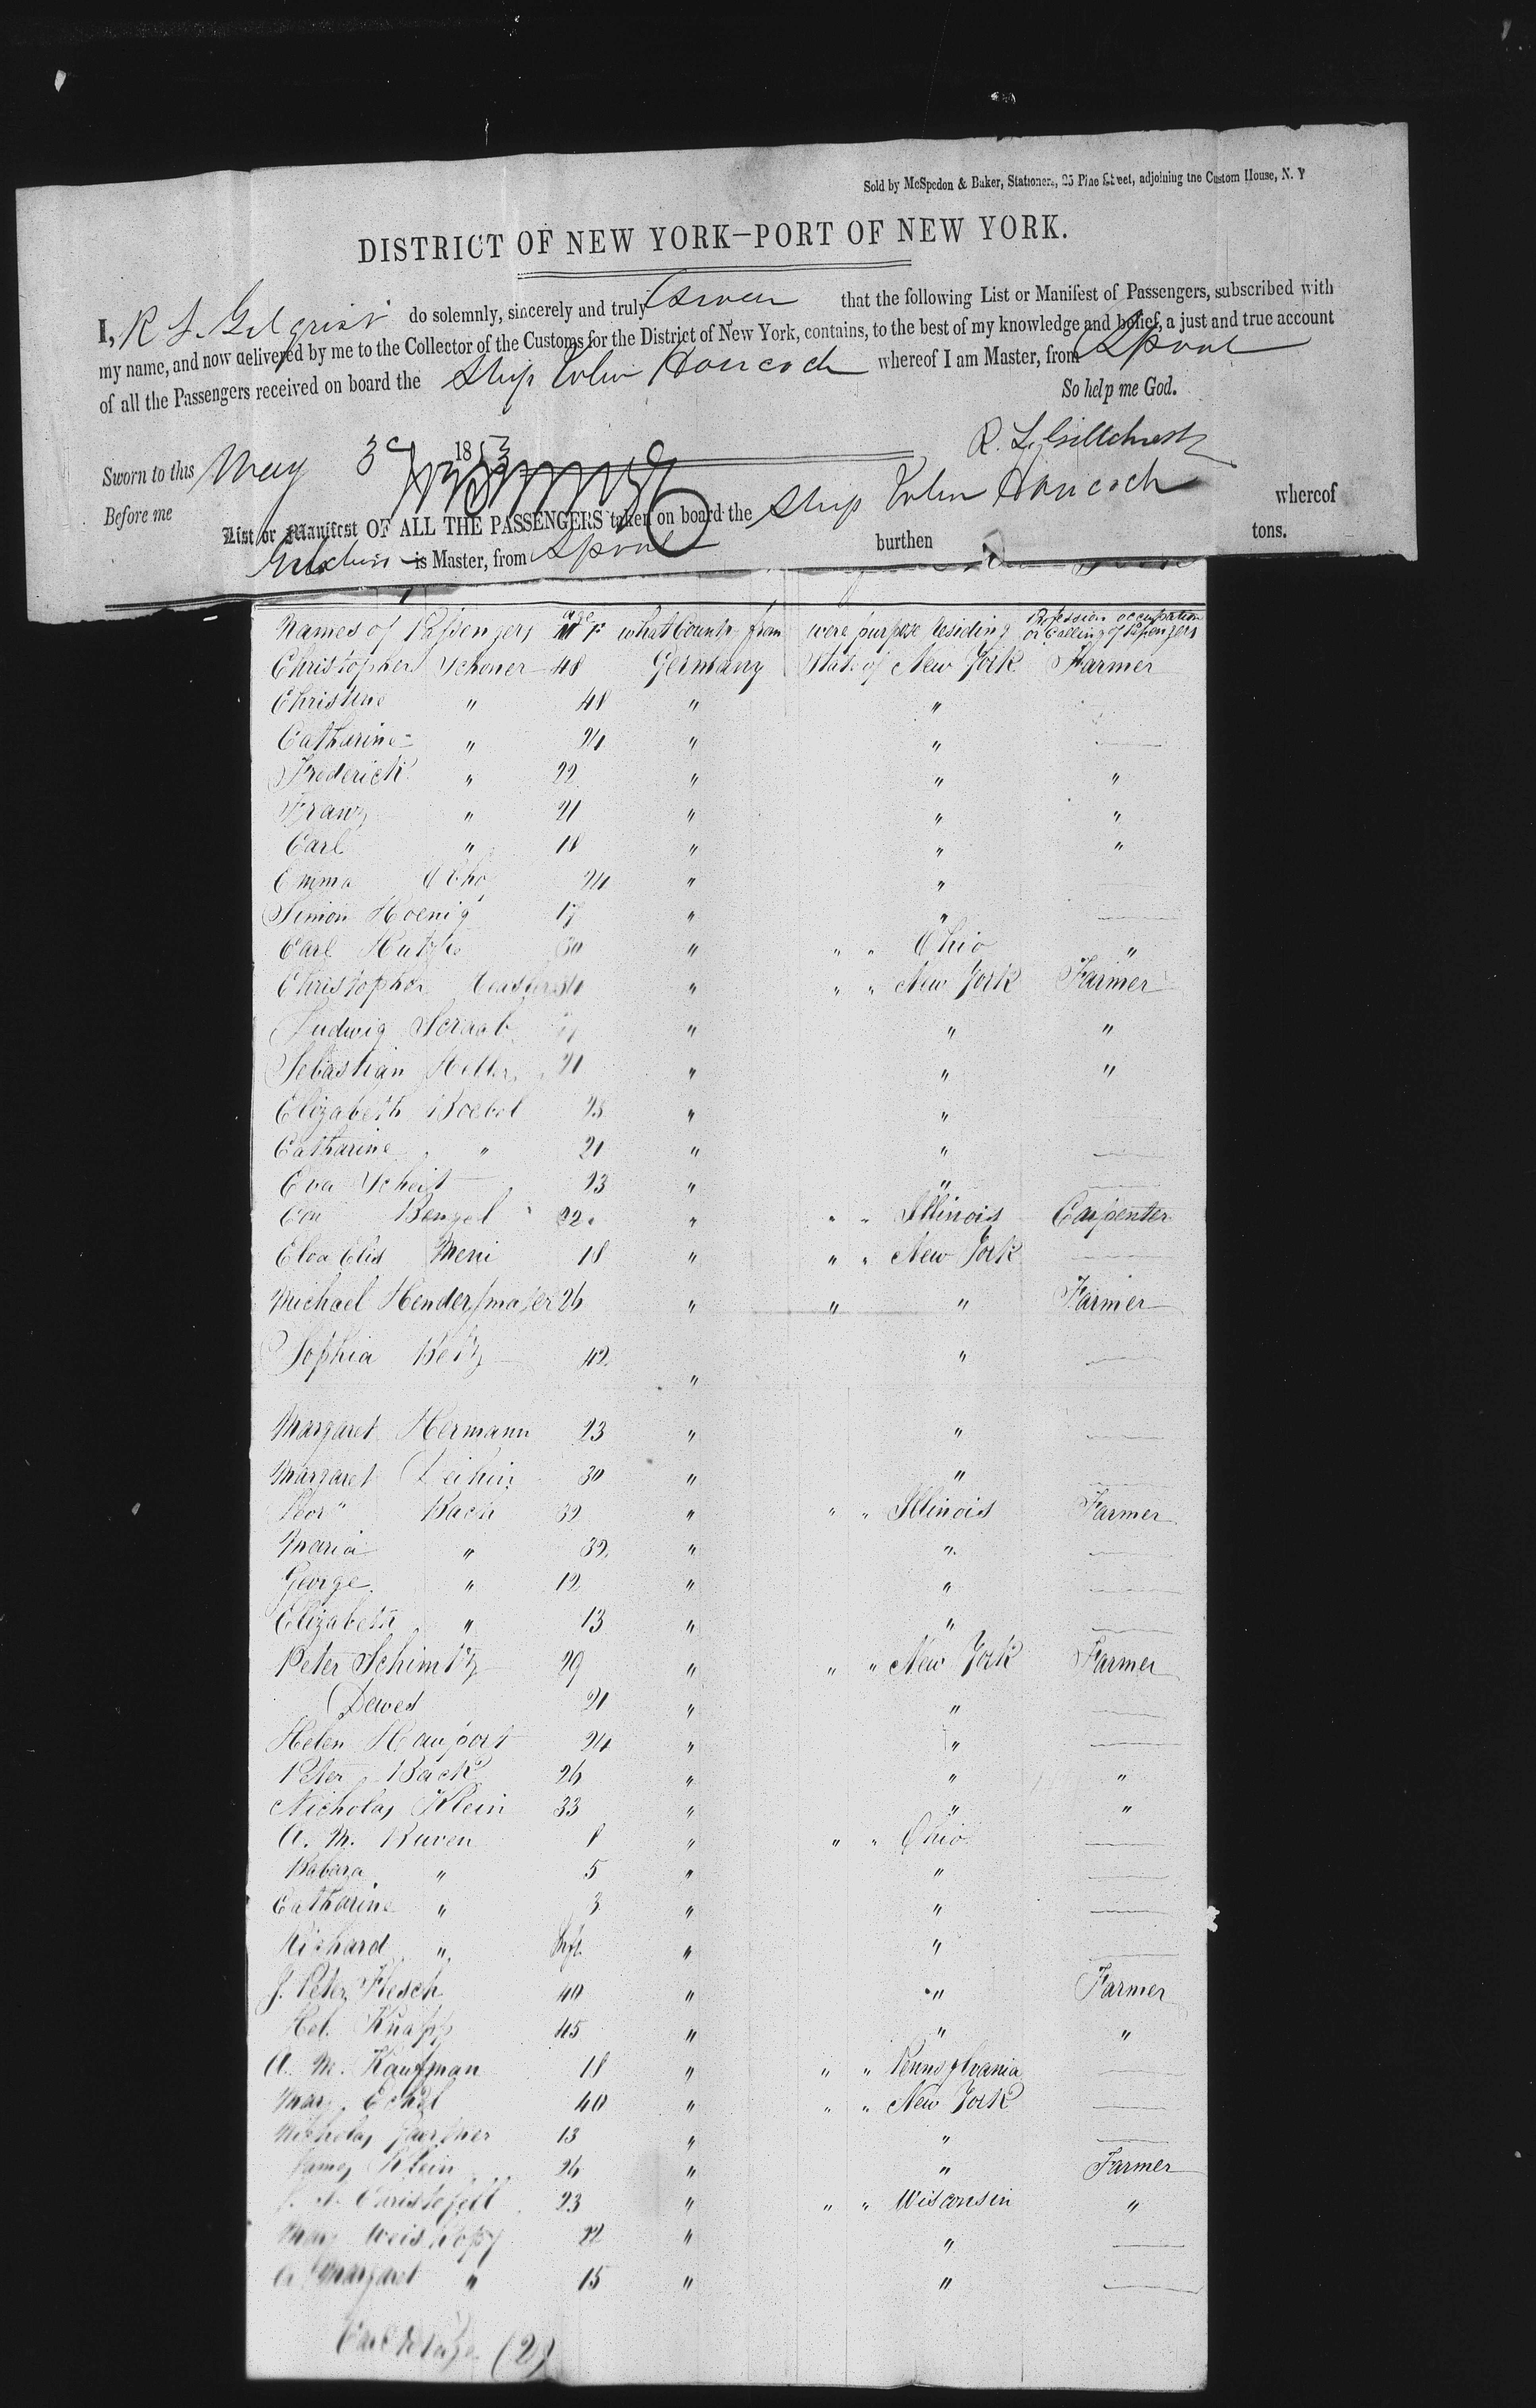 Sold by McSpedon & Baker, Stationers, 25 Pine Street, adjoining the Custom House, N. Y
DISTRICT OF NEW YORK—PORT OF NEW YORK.
I, R L. Gilgrist do solemnly, sincerely and truly Swear that the following List or Manifest of Passengers, subscribed with
my name, and now delivered by me to the Collector of the Customs for the District of New York, contains, to the best of my knowledge and belief, a just and true account
of all the Passengers received on board the Ship John Hancock whereof I am Master, from Lpool
So help me God.
R. L. Gillchrest
Sworn to this May 3d 1853
Before me
List or Manifest OF ALL THE PASSENGERS taken on board the Ship John Hancock whereof
is Master, from Lpool burthen tons.
Names of Passengers age M F what Country from were purpose residing Profession occupation or Calling of Passengers
Christopher Schoner 48 Germany State of New York Farmer
Christine " 48 " "
Catharine " 24 " " —
Frederick " 22 " " "
Franz " 21 " " "
Carl " 18 " " "
Emma 24 " " —
Simon Hoenig 17 " " —
Carl " " " Ohio "
Christopher " " " New York Farmer
Ludwig " " "
Sebastian 21 " " "
Elizabeth Boebel 23 " "
Catharine " 21 " " —
Eva Scheit 23 " " —
Bengel 22 " " " Illinois Carpenter
Meni 18 " " " New York —
Michael 26 " " " Farmer
Sophia Betz 42 " " —
Margaret Hermann 23 " " —
Margaret 30 " " —
Bach 39 " " " Illinois Farmer
Maria " 39 " " —
George " 12 " " —
Elizabeth " 13 " " —
Peter Schimtz 29 " " " New York Farmer
Dawes 21 " " —
Helen Hauport 24 " " —
Peter Back 26 " " "
Nicholas Klein 33 " " "
A. M. Buren 8 " " " Ohio —
Babara " 5 " " —
Catharine " 3 " " —
Richard " Inft " " —
J. Peter Flesch 40 " " Farmer
Hel. Knapp 45 " " "
A. M. Kaufman 18 " " " Pennsylvania —
Mary 40 " " " New York —
Nicholas 13 " " —
James Klein 26 " " Farmer
Christofell 23 " " " Wisconsin "
Mary Weiskopf 22 " " —
Margaret " 15 " " —
(2)